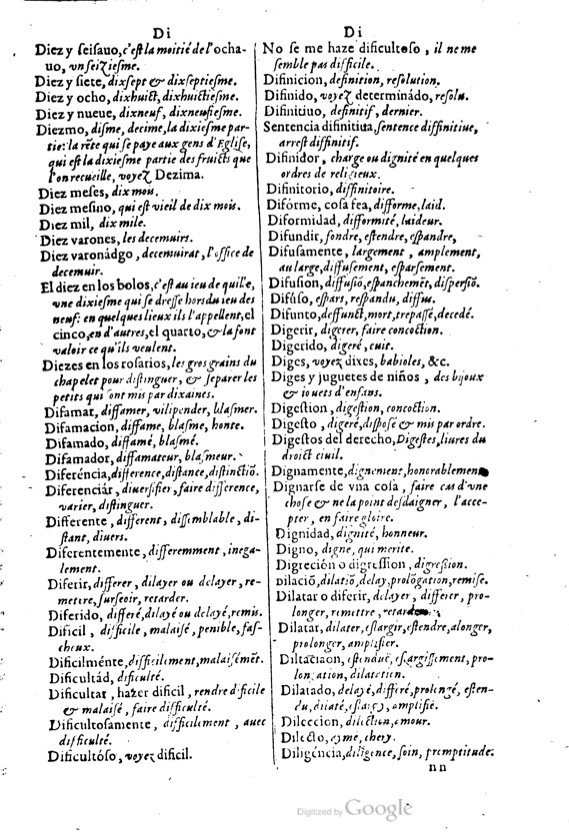 Di
Diez y seisauo, c'est la moitié de l'ocha-
uo, vn seiziesme.
Diez y siete, dixsept & dixseptiesme.
Diez y ocho, dixhuict, dixhuictiesme.
Diez y nueue, dixneuf, dixneufiesme.
Diezmo, disme, decime, la dixiesme par-
tie: la rẽte qui se paye aux gens d'Eglise,
qui est la dixiesme partie des fruicts que
l'on recueille, voyez Dezima.
Diez meses, dix mois.
Diez mesino, qui est vieil de dix mois.
Diez mil, dix mile.
Diez varones, les decemuirs.
Diez varonádgo, decemuirat, l'office de
decemuir.
El diez en los bolos, c'est au ieu de quille,
vne dixiesme qui se dresse hors du ieu des
neuf: en quelques lieux ils l'appellent, el
cinco, en d'autres, el quarto, & la font
valoir ce qu'ils veulent.
Diezes en los rosarios, les gros grains du
chapelet pour distinguer, & separer les
petits qui sont mis par dixaines.
Difamar, diffamer, vilipender, blasmer.
Difamacion, diffame, blasme, honte.
Difamado, diffamé, blasmé.
Difamador, diffamateur, blasmeur.
Diferéncia, difference, distance, distinctiõ.
Diferenciár, diuersifier, faire difference,
varier, distinguer.
Differente, different, dissemblable, di-
stant, diuers.
Diferentemente, differemment, inega-
lement.
Diferir, differer, dilayer ou delayer, re-
mettre, surseoir, retarder.
Diferido, differé, dilayé ou delayé, remis.
Dificil, difficile, malaisé, penible, fas-
cheux.
Dificilménte, difficilement, malaisémẽt.
Dificultád, difficulté.
Dificultar, hazer dificil, rendre difficile
& malaisé, faire difficulté.
Dificultosamente, difficilement, auec
difficulté.
Dificultóso, voyez dificil.
Di
No se me haze dificultoso, il ne me
semble pas difficile.
Difinicion, definition, resolution.
Difinido, voyez determinádo, resolu.
Difinitiuo, definitif, dernier.
Sentencia difinitiua, sentence diffinitiue,
arrest diffinitif.
Difinidor, charge ou dignité en quelques
ordres de religieux.
Difinitorio, diffinitoire.
Difórme, cosa fea, difforme, laid.
Diformidad, difformité, laideur.
Difundir, fondre, estendre, espandre,
Difusamente, largement, amplement,
au large, diffusement, esparsement.
Difusion, diffusiõ, espanchemẽt, dispersiõ.
Difúso, espars, respandu, diffus.
Difunto, deffunct, mort, trepassé, decedé.
Digerir, digerer, faire concoction.
Digerido, digeré, cuit.
Diges, voyez dixes, babioles, &c.
Diges y juguetes de niños, des bijoux
& iouets d'enfans.
Digestion, digestion, concoction.
Digesto, digeré, disposé & mis par ordre.
Digestos del derecho, Digestes, liures du
droict ciuil.
Dignamente, dignement, honorablement
Dignarse de vna cosa, faire cas d'vne
chose & ne la point desdaigner, l'acce-
pter, en faire gloire.
Dignidad, dignité, honneur.
Digno, digne, qui merite.
Digreción o digression, digression.
Dilaciõ, dilatiõ, delay, prolõgation, remise.
Dilatar o diferir, delayer, differer, pro-
longer, remettre, retarder.
Dilatar, dilater, eslargir, estendre, alonger,
prolonger, amplifier.
Diltaciaon, estenduë, eslargissement, pro-
longation, dilatation.
Dilatado, delayé, differé, prolongé, esten-
du, dilaté, eslargy, amplifié.
Dileccion, dilection, amour.
Dilecto, aymé, chery.
Diligéncia, diligence, soin, promptitude.
nn
Digitized by Google